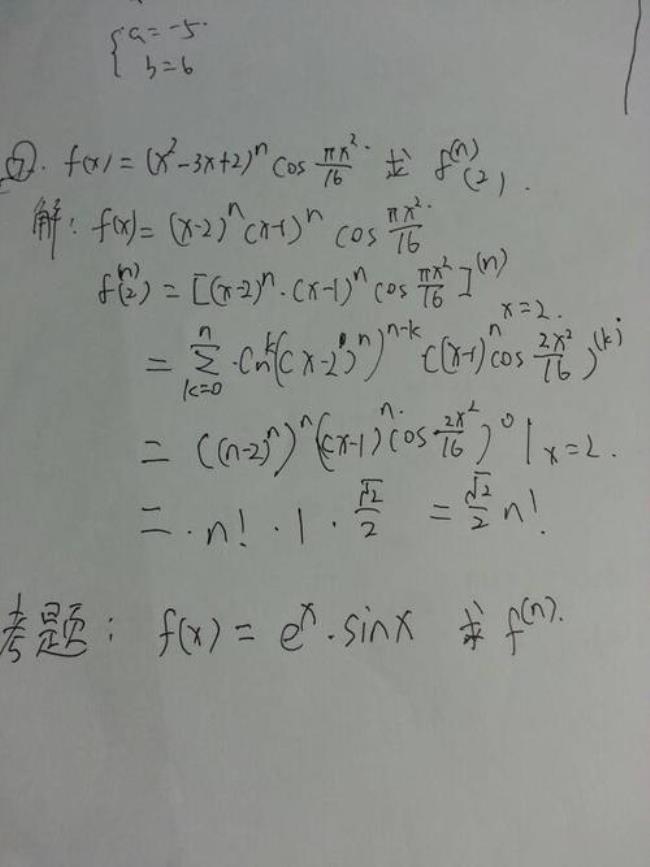 {a=-5.
b=6
⑦. f(x)=(x²-3x+2)ⁿ cos πx²/16. 求 f⁽ⁿ⁾(2).
解: f(x)=(x-2)ⁿ(x-1)ⁿ cos πx²/16
f⁽ⁿ⁾(2)=[(x-2)ⁿ·(x-1)ⁿ cos πx²/16]⁽ⁿ⁾ x=2.
= Σ_{k=0}^{n} ·Cₙᵏ((x-2)ⁿ)ⁿ⁻ᵏ ((x-1)ⁿ cos 2x²/16)⁽ᵏ⁾
= ((n-2)ⁿ)ⁿ((x-1)ⁿ· cos 2x²/16)⁰ | x=2.
= ·n!·1·√2/2 = √2/2 n!
考题: f(x)=eˣ·sinx 求 f⁽ⁿ⁾.